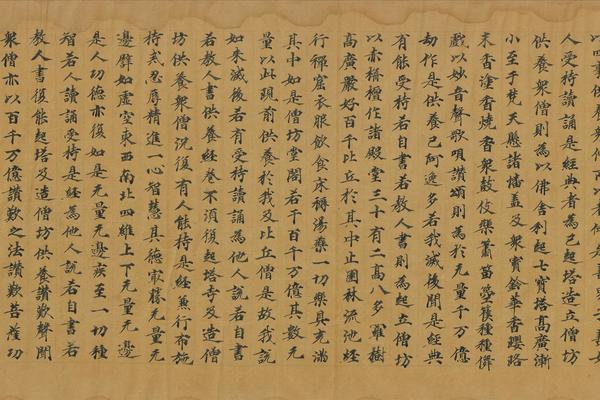 人受持讀誦是經典者為已起塔造立僧坊
供養衆僧則為以佛舍利起七寶塔高廣漸
小至于梵天懸諸幡蓋及衆寶鈴華香瓔珞
末香塗香燒香衆鼓伎樂簫笛箜篌種種儛
戲以妙音聲歌唄讚頌則為於无量千万億
劫作是供養已阿逸多若我滅後聞是經典
有能受持若自書若教人書則為起立僧坊
以赤栴檀作諸殿堂三十有二高八多羅樹
高廣嚴好百千比丘於其中止園林流池經
行禪窟衣服飲食床褥湯藥一切樂具充滿
其中如是僧坊堂閣若干百千万億其數无
量以此現前供養於我及比丘僧是故我說
如来滅後若有受持讀誦為他人說若自書
若教人書供養經卷不須復起塔寺及造僧
坊供養衆僧況復有人能持是經兼行布施
持戒忍辱精進一心智慧其德㝡勝无量无
邊譬如虛空東西南北四維上下无量无邊
是人功德亦復如是无量无邊疾至一切種
智若人讀誦受持是經為他人說若自書若
教人書復能起塔及造僧坊供養讚歎聲聞
衆僧亦以百千万億讚歎之法讚歎菩薩功